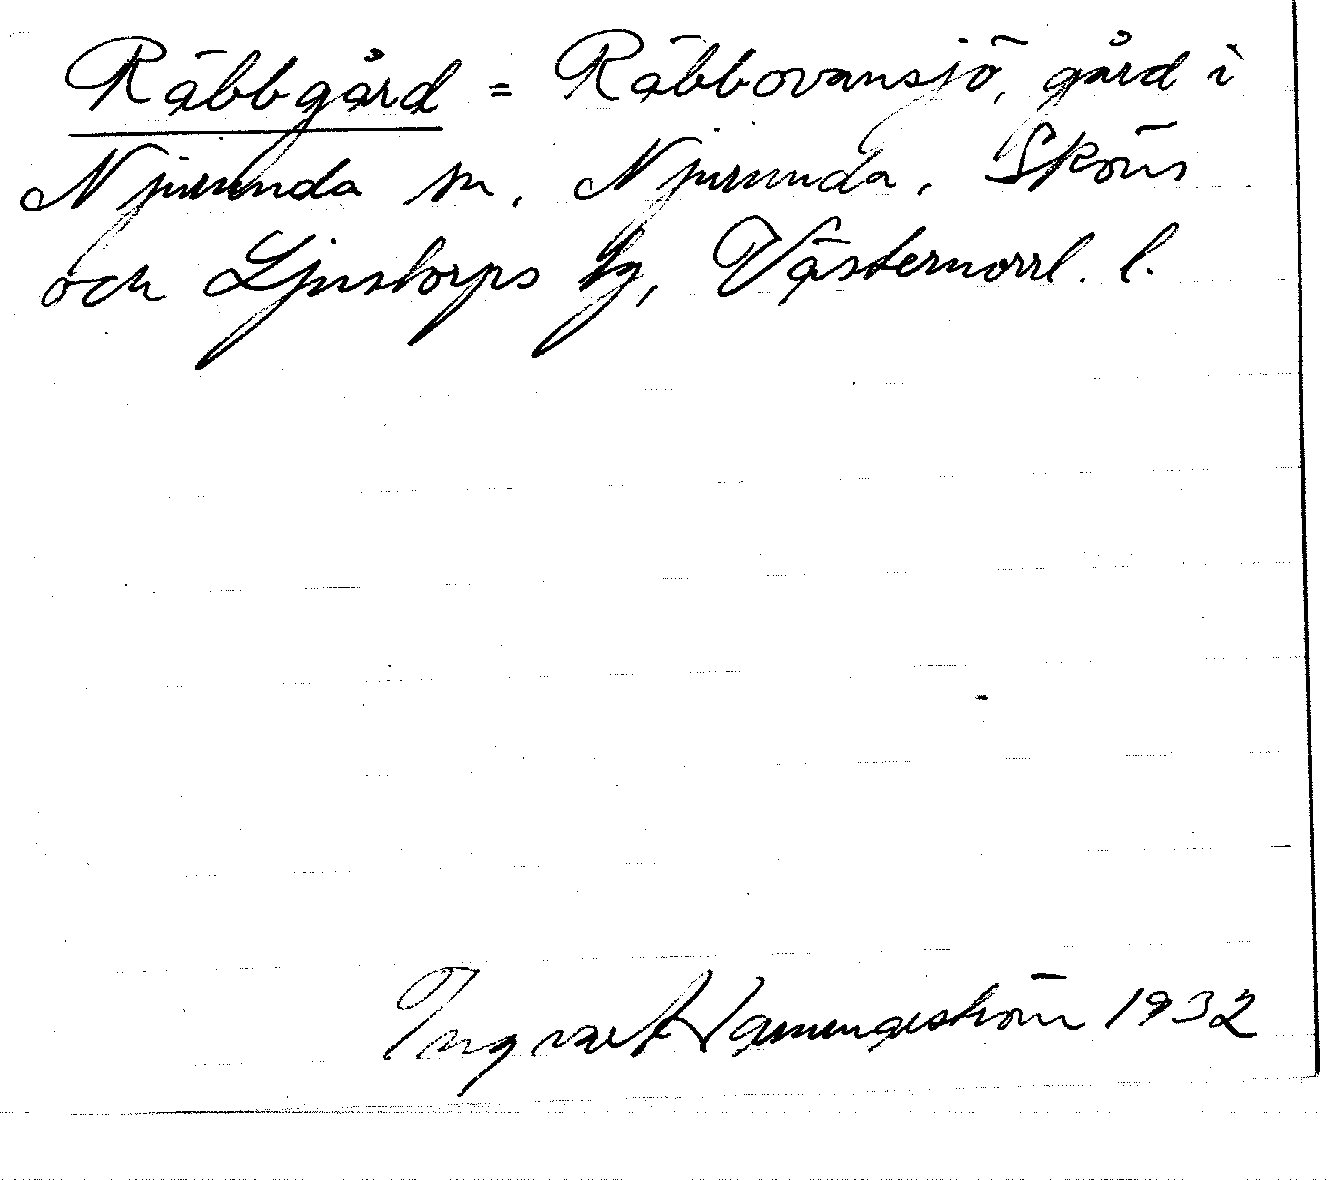 Räbbgård = Räbbovansjö, gård i
Njurunda sn, Njurunda, Sköns
och Ljustorps tg, Västernorrl. l.
Ingvar Hammarström 1932